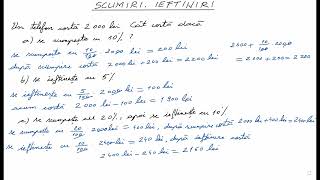 SCUMIRI. IEFTINIRI
Un telefon costă 2000 lei. Cât costă dacă
a) se scumpește cu 10%?
se scumpește cu 10/100 · 2000 lei = 200 lei
2000 + 10/100 · 2000
după scumpire costă 2000 lei + 200 lei = 2200 lei
= 2000 + 200 = 2200
b) se ieftinește cu 5%
se ieftinește cu 5/100 · 2000 lei = 100 lei
acum costă 2000 lei - 100 lei = 1900 lei
c) se scumpește cu 20%, apoi se ieftinește cu 10%
se scumpește cu 20/100 · 2000 lei = 400 lei, după scumpire costă 2000 lei + 400 lei = 2400 lei
se ieftinește cu 10/100 · 2400 lei = 240 lei, după ieftinire costă
2400 lei - 240 lei = 2160 lei